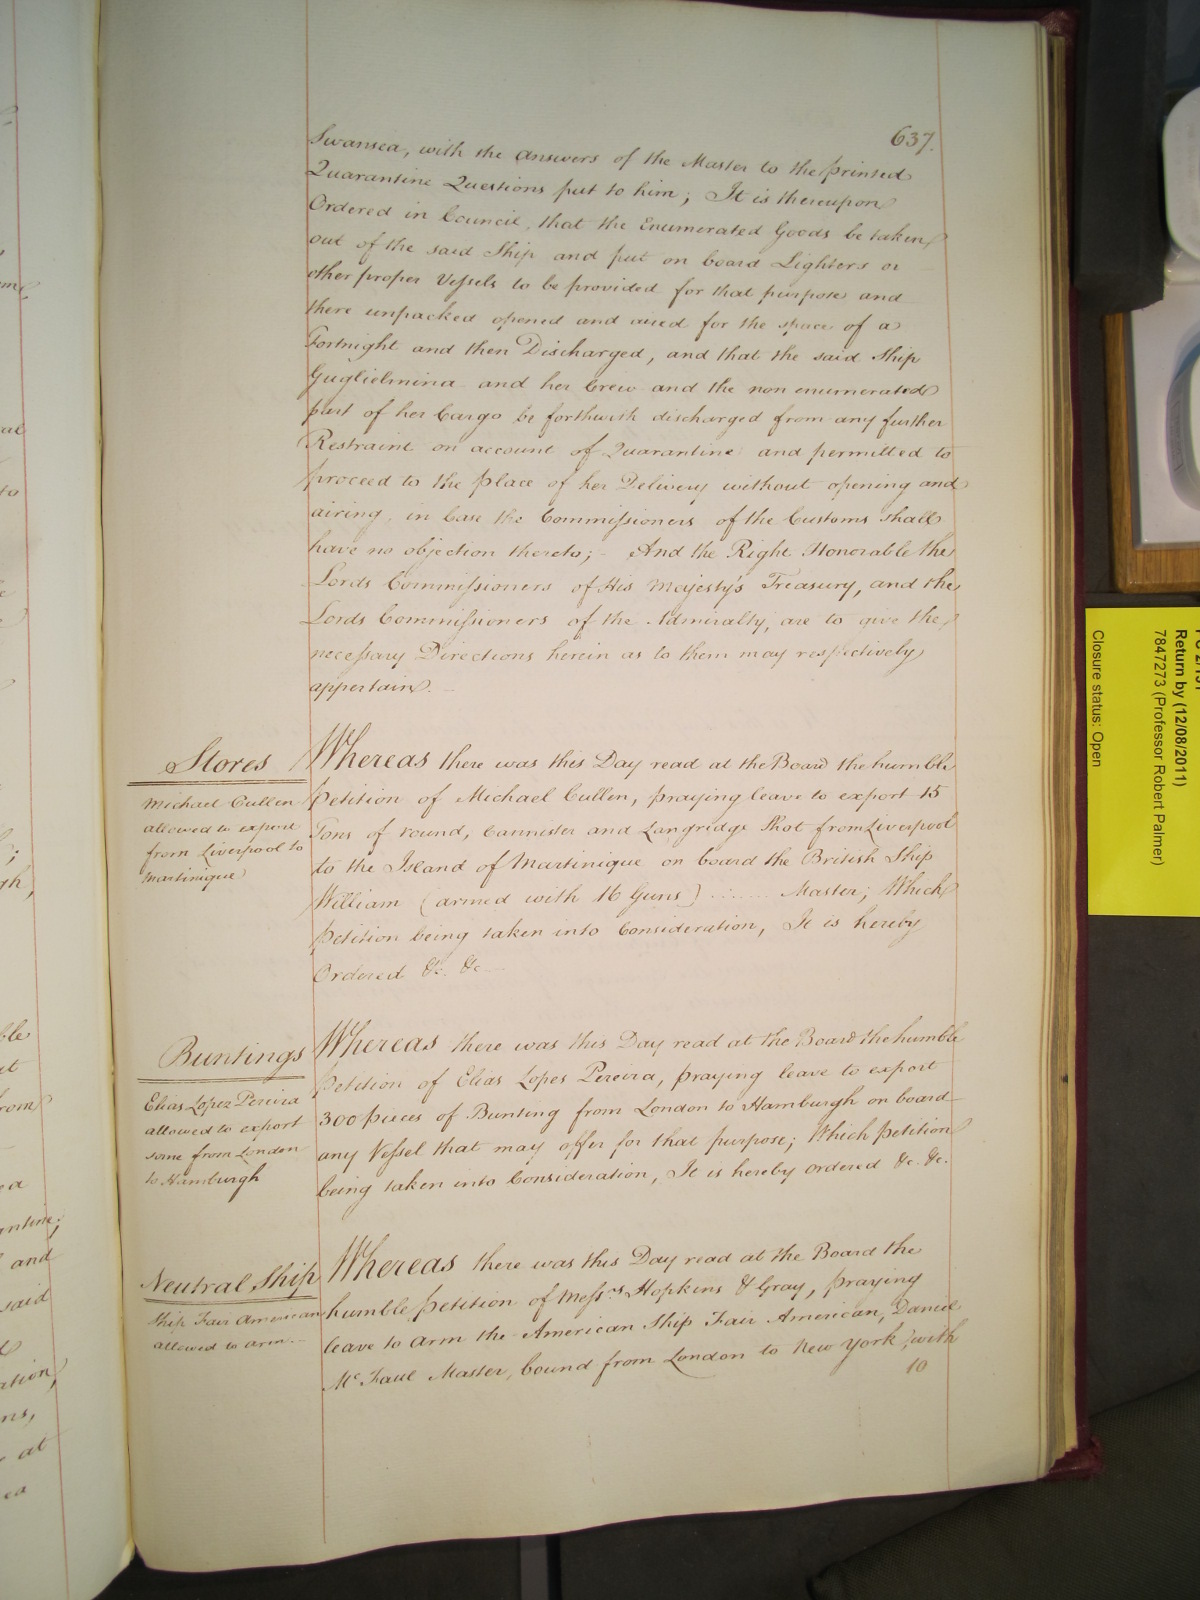 637.
Swansea, with the answers of the Master to the printed
Quarantine Questions put to him; It is thereupon
Ordered in Council, that the Enumerated Goods be taken
out of the said Ship and put on board Lighters or
other proper Vessels to be provided for that purpose and
there unpacked opened and aired for the space of a
Fortnight and then Discharged, and that the said Ship
Guglielmina and her Crew and the non enumerated
part of her Cargo be forthwith discharged from any further
Restraint on account of Quarantine and permitted to
proceed to the place of her Delivery without opening and
airing, in Case the Commissioners of the Customs shall
have no objection thereto;- And the Right Honorable the
Lords Commissioners of His Majesty's Treasury, and the
Lords Commissioners of the Admiralty, are to give the
necessary Directions herein as to them may respectively
appertain.
Stores
Michael Cullen
allowed to export
from Liverpool to
Martinique
Whereas there was this Day read at the Board the humble
Petition of Michael Cullen, praying leave to export 15
Tons of round, Cannister and Langridge Shot from Liverpool
to the Island of Martinique on board the British Ship
William (armed with 16 Guns) ...... Master; Which
Petition being taken into Consideration, It is hereby
Ordered &c. &c
Buntings
Elias Lopez Pereira
allowed to export
some from London
to Hamburgh
Whereas there was this Day read at the Board the humble
Petition of Elias Lopes Pereira, praying leave to export
300 pieces of Bunting from London to Hamburgh on board
any Vessel that may offer for that purpose; Which Petition
being taken into Consideration, It is hereby ordered &c. &c.
Neutral Ship
Ship Fair American
allowed to arm.-
Whereas there was this Day read at the Board the
humble Petition of Messrs Hopkins & Gray, praying
leave to arm the American Ship Fair American, Daniel
Mc Faul Master, bound from London to New York, with
10
Return by (12/08/2011)
7847273 (Professor Robert Palmer)
Closure status: Open